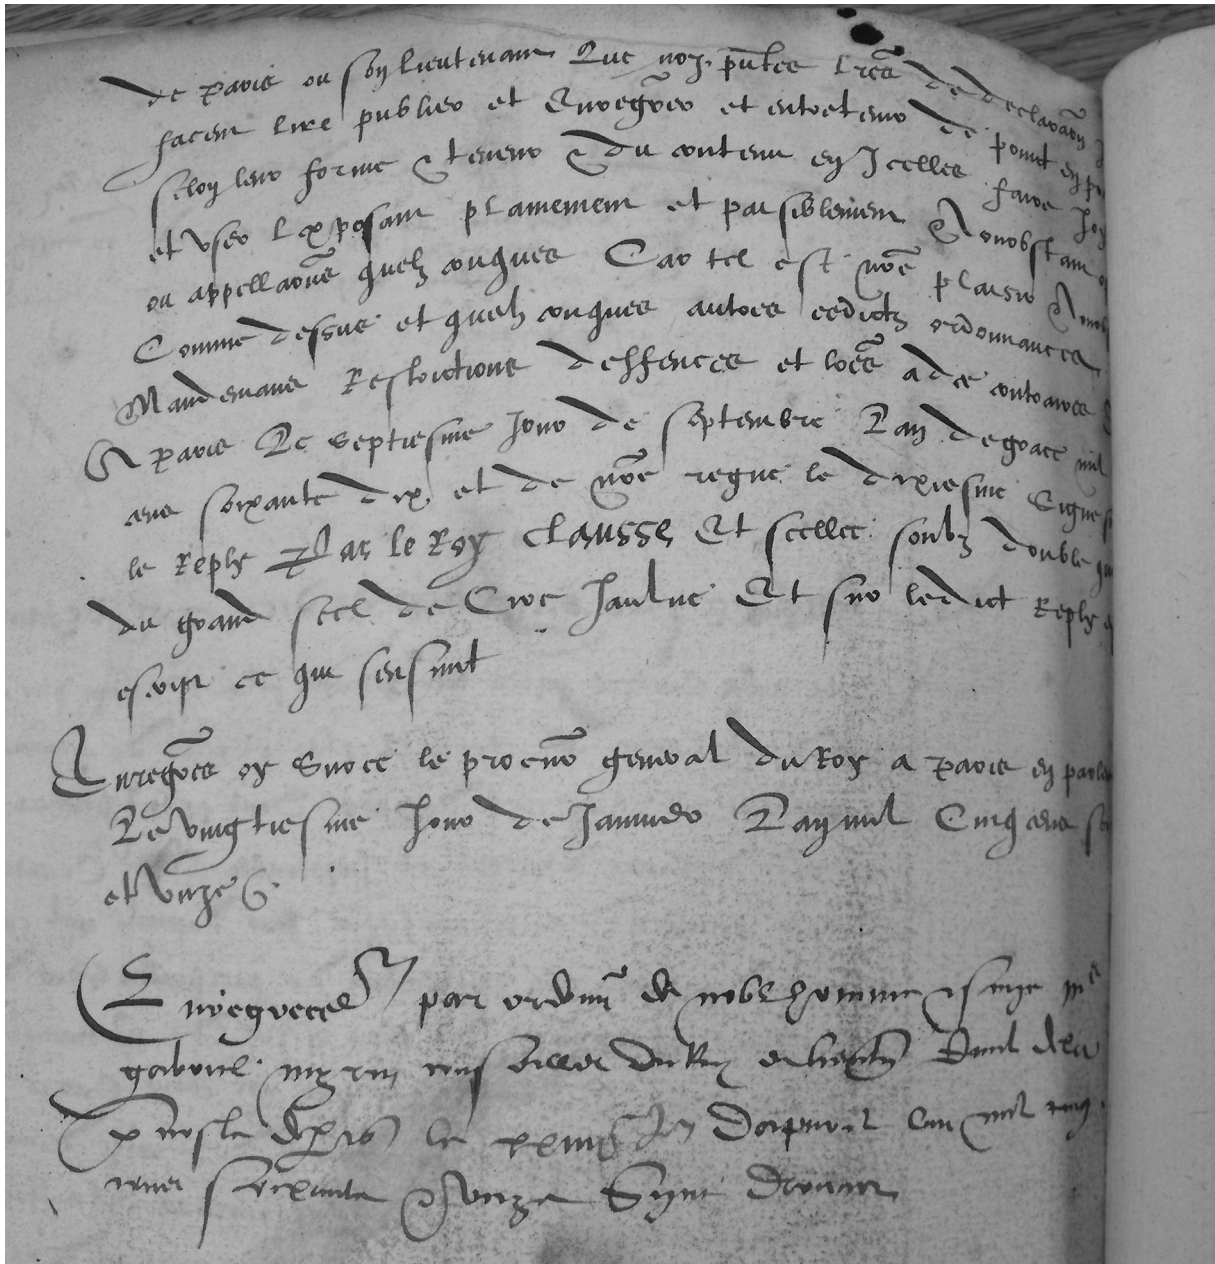 de paris ou son lieutenant Que noz pntes lres de declaraon
facent lire publier et Enregrer et entretenir de point en
selon leur forme & teneur & du contenu en Icelles faire Joy
et user lexposant plainement et paisiblement Nonobstant
ou appellaons quelz conques Car tel est nre plaisir Nonob
Comme dessus et quelz conques autres eedictz ordonnances
Mandemens Restrictions deffences et lres a ce contraires
A paris Le Septiesme Jour de septembre Lan de grace mil
cens soixante dix et de nre regne le dixiesme Signe
le Reply Par le Roy Clausse Et scellee soubz double
du grand scel de Cire Jaulne Et sur ledict Reply
escript ce qui sensuict
Enregrees oy Sur ce le procur general du Roy a paris en
Le vingtiesme Jour de Janvier Lan mil Cinq cens
et Unze
Enregistrees par ordonn de noble homme et saige me
gabriel myron conseiller du Roy et lieuten Civil de la
prevoste de paris le Jor Dapvril lan mil cinq
cens soixante & unze Signe Drouart